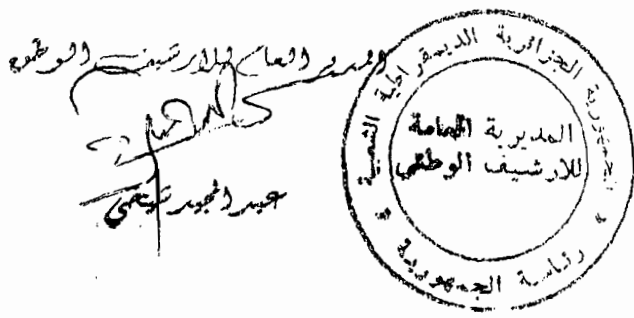 المدير العام للأرشيف الوطني
عبد المجيد شيخي
الجمهورية الجزائرية الديمقراطية الشعبية
المديرية العامة
للارشيف الوطني
رئاسة الجمهورية